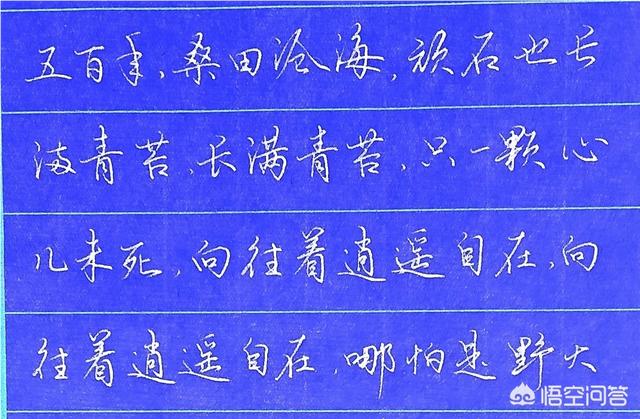 五百年,桑田沧海,顽石也长
满青苔,长满青苔,只一颗心
儿未死,向往着逍遥自在,向
往着逍遥自在,哪怕是野火
悟空问答